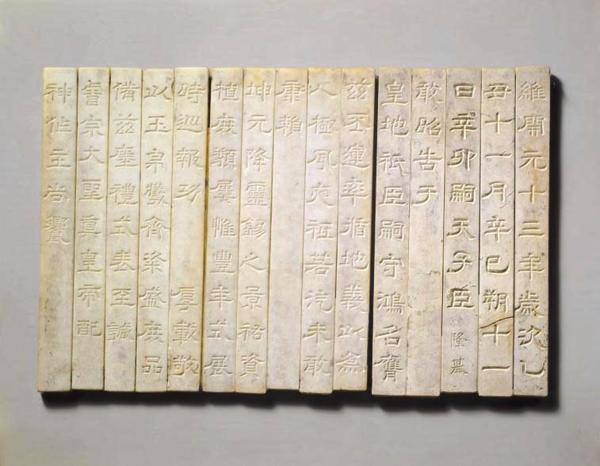 維開元十三年歲次乙
丑十一月辛巳朔十一
日辛卯嗣天子臣隆基
敢昭告于
皇地祇臣嗣守鴻名膺
茲丕運率循地義以為
人極夙夜祗若汔未敢
康賴
坤元降靈錫之景祐資
植庶類屢惟豐年式展
時巡報功 厚載敬
以玉帛犧齊粢盛庶品
備茲瘞禮式表至誠
睿宗大聖真皇帝配
神作主尚饗